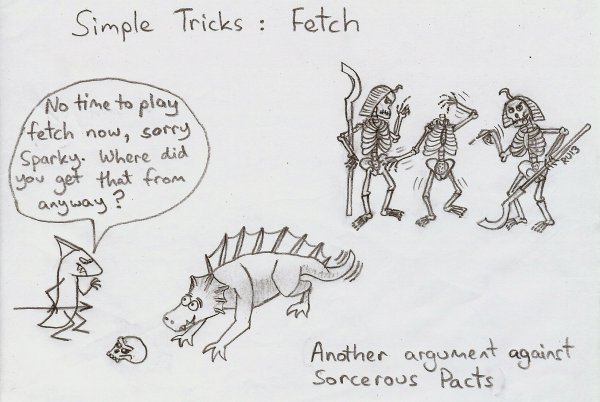 Simple Tricks : Fetch
No time to play
fetch now, sorry
Sparky. Where did
you get that from
anyway?
Another argument against
Sorcerous Pacts